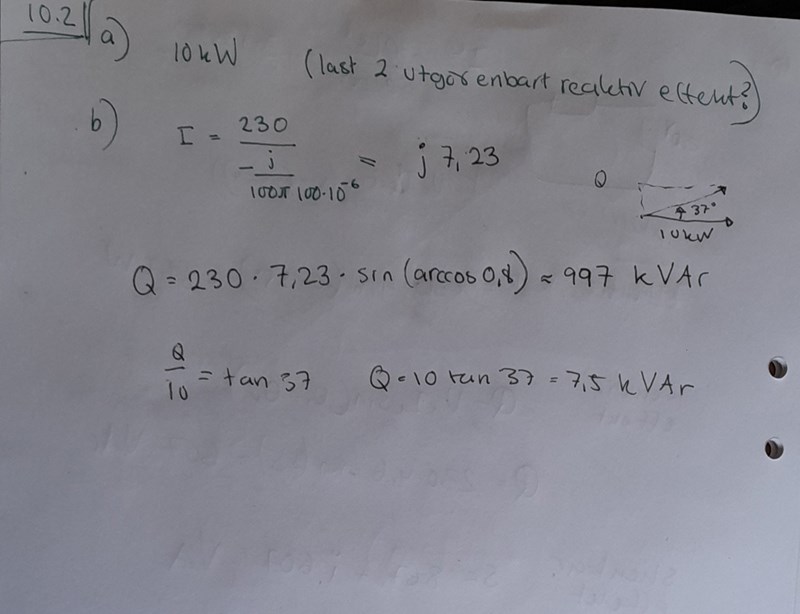 10.2
a) 10 kW (last 2 utgör enbart reaktiv effekt?)
b) I = 230 / (-j / (100π 100·10^-6)) = j 7,23
Q
37°
10kW
Q = 230 · 7,23 · sin (arccos 0,8) ≈ 997 kVAr
Q/10 = tan 37 Q = 10 tan 37 = 7,5 kVAr